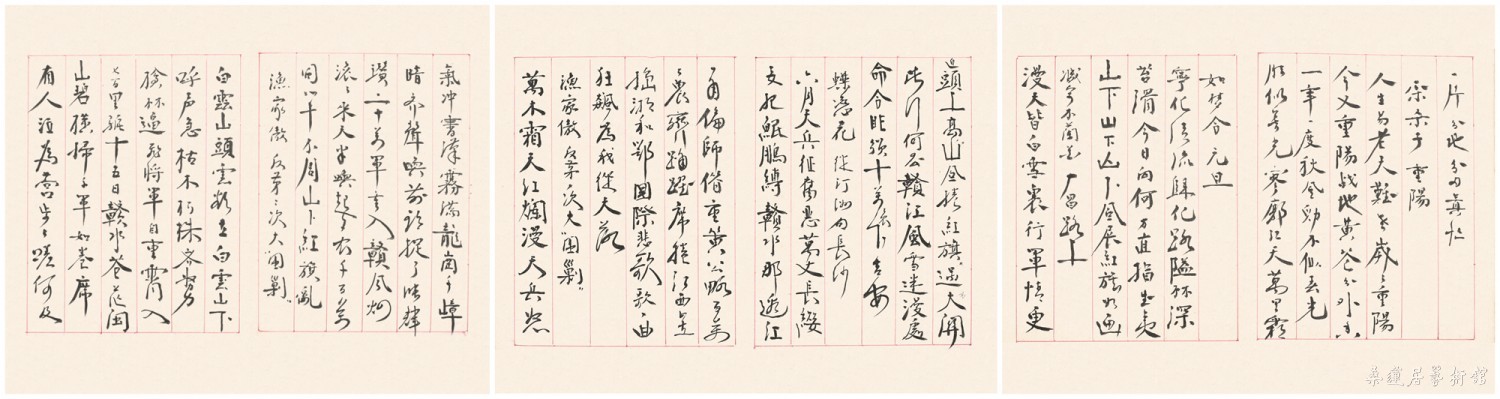 一片分田分地真忙
采桑子 重陽
人生易老天難老歲歲重陽
今又重陽戰地黃花分外香
一年一度秋風勁不似春光
勝似春光寥廓江天萬里霜
如梦令 元旦
寧化清流歸化路隘林深
苔滑今日向何方直指武夷
山下山下山下風展紅旗如画
减字木蘭花 广昌路上
漫天皆白雪裏行軍情更
迫頭上高山風捲紅旗過大關
此行何去贛江風雪迷漫處
命令昨頒十萬工農下吉安
蝶恋花 從汀州向長沙
六月天兵征腐惡萬丈長纓
要把鯤鵬縛贛水那邊紅
一角偏師借重黃公略百萬
工農齊踴躍席捲江西直
搗湘和鄂國際悲歌歌一曲
狂飆為我從天落
漁家傲 反第一次大圍剿
萬木霜天紅爛漫天兵怒
氣冲霄漢霧滿龍岡千嶂
暗齊聲喚前頭捉了張輝
瓚二十萬軍重入贛風烟
滾滾來天半喚起工农千百萬
同心干不周山下紅旗亂
漁家傲 反第二次大圍剿
白雲山頭雲欲立白雲山下
呼声急枯木朽株齊努力
槍林逼飛將軍自重霄入
七百里驅十五日贛水蒼茫閩
山碧橫掃千軍如卷席
有人泣為營步步嗟何及
桑蓮居藝術館